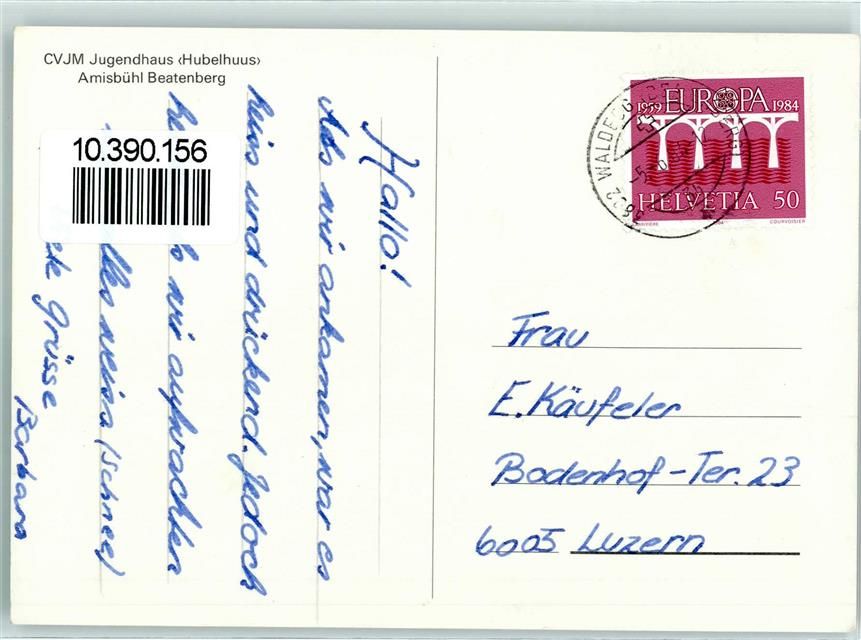 CVJM Jugendhaus ‹Hubelhuus›
Amisbühl Beatenberg
10.390.156
Hallo!
Als wir ankamen, war es
heiss und drückend. Jedoch
wir aufwachten
alles weiss (Schnee)
Grüsse
Barbara
1959 EUROPA 1984
HELVETIA 50
COURVOISIER
WALDEGG
Frau
E. Käufeler
Bodenhof-Ter. 23
6005 Luzern